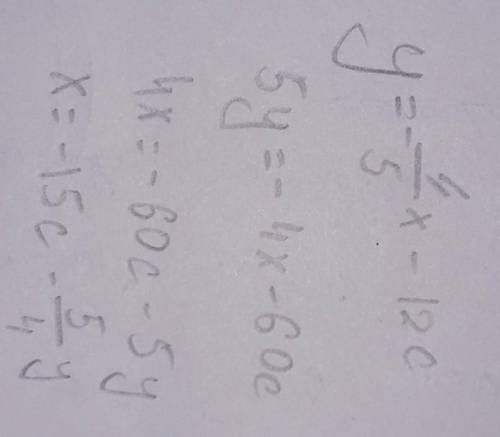 y = -4/5 x - 12c
5y = -4x - 60c
4x = -60c - 5y
x = -15c - 5/4 y